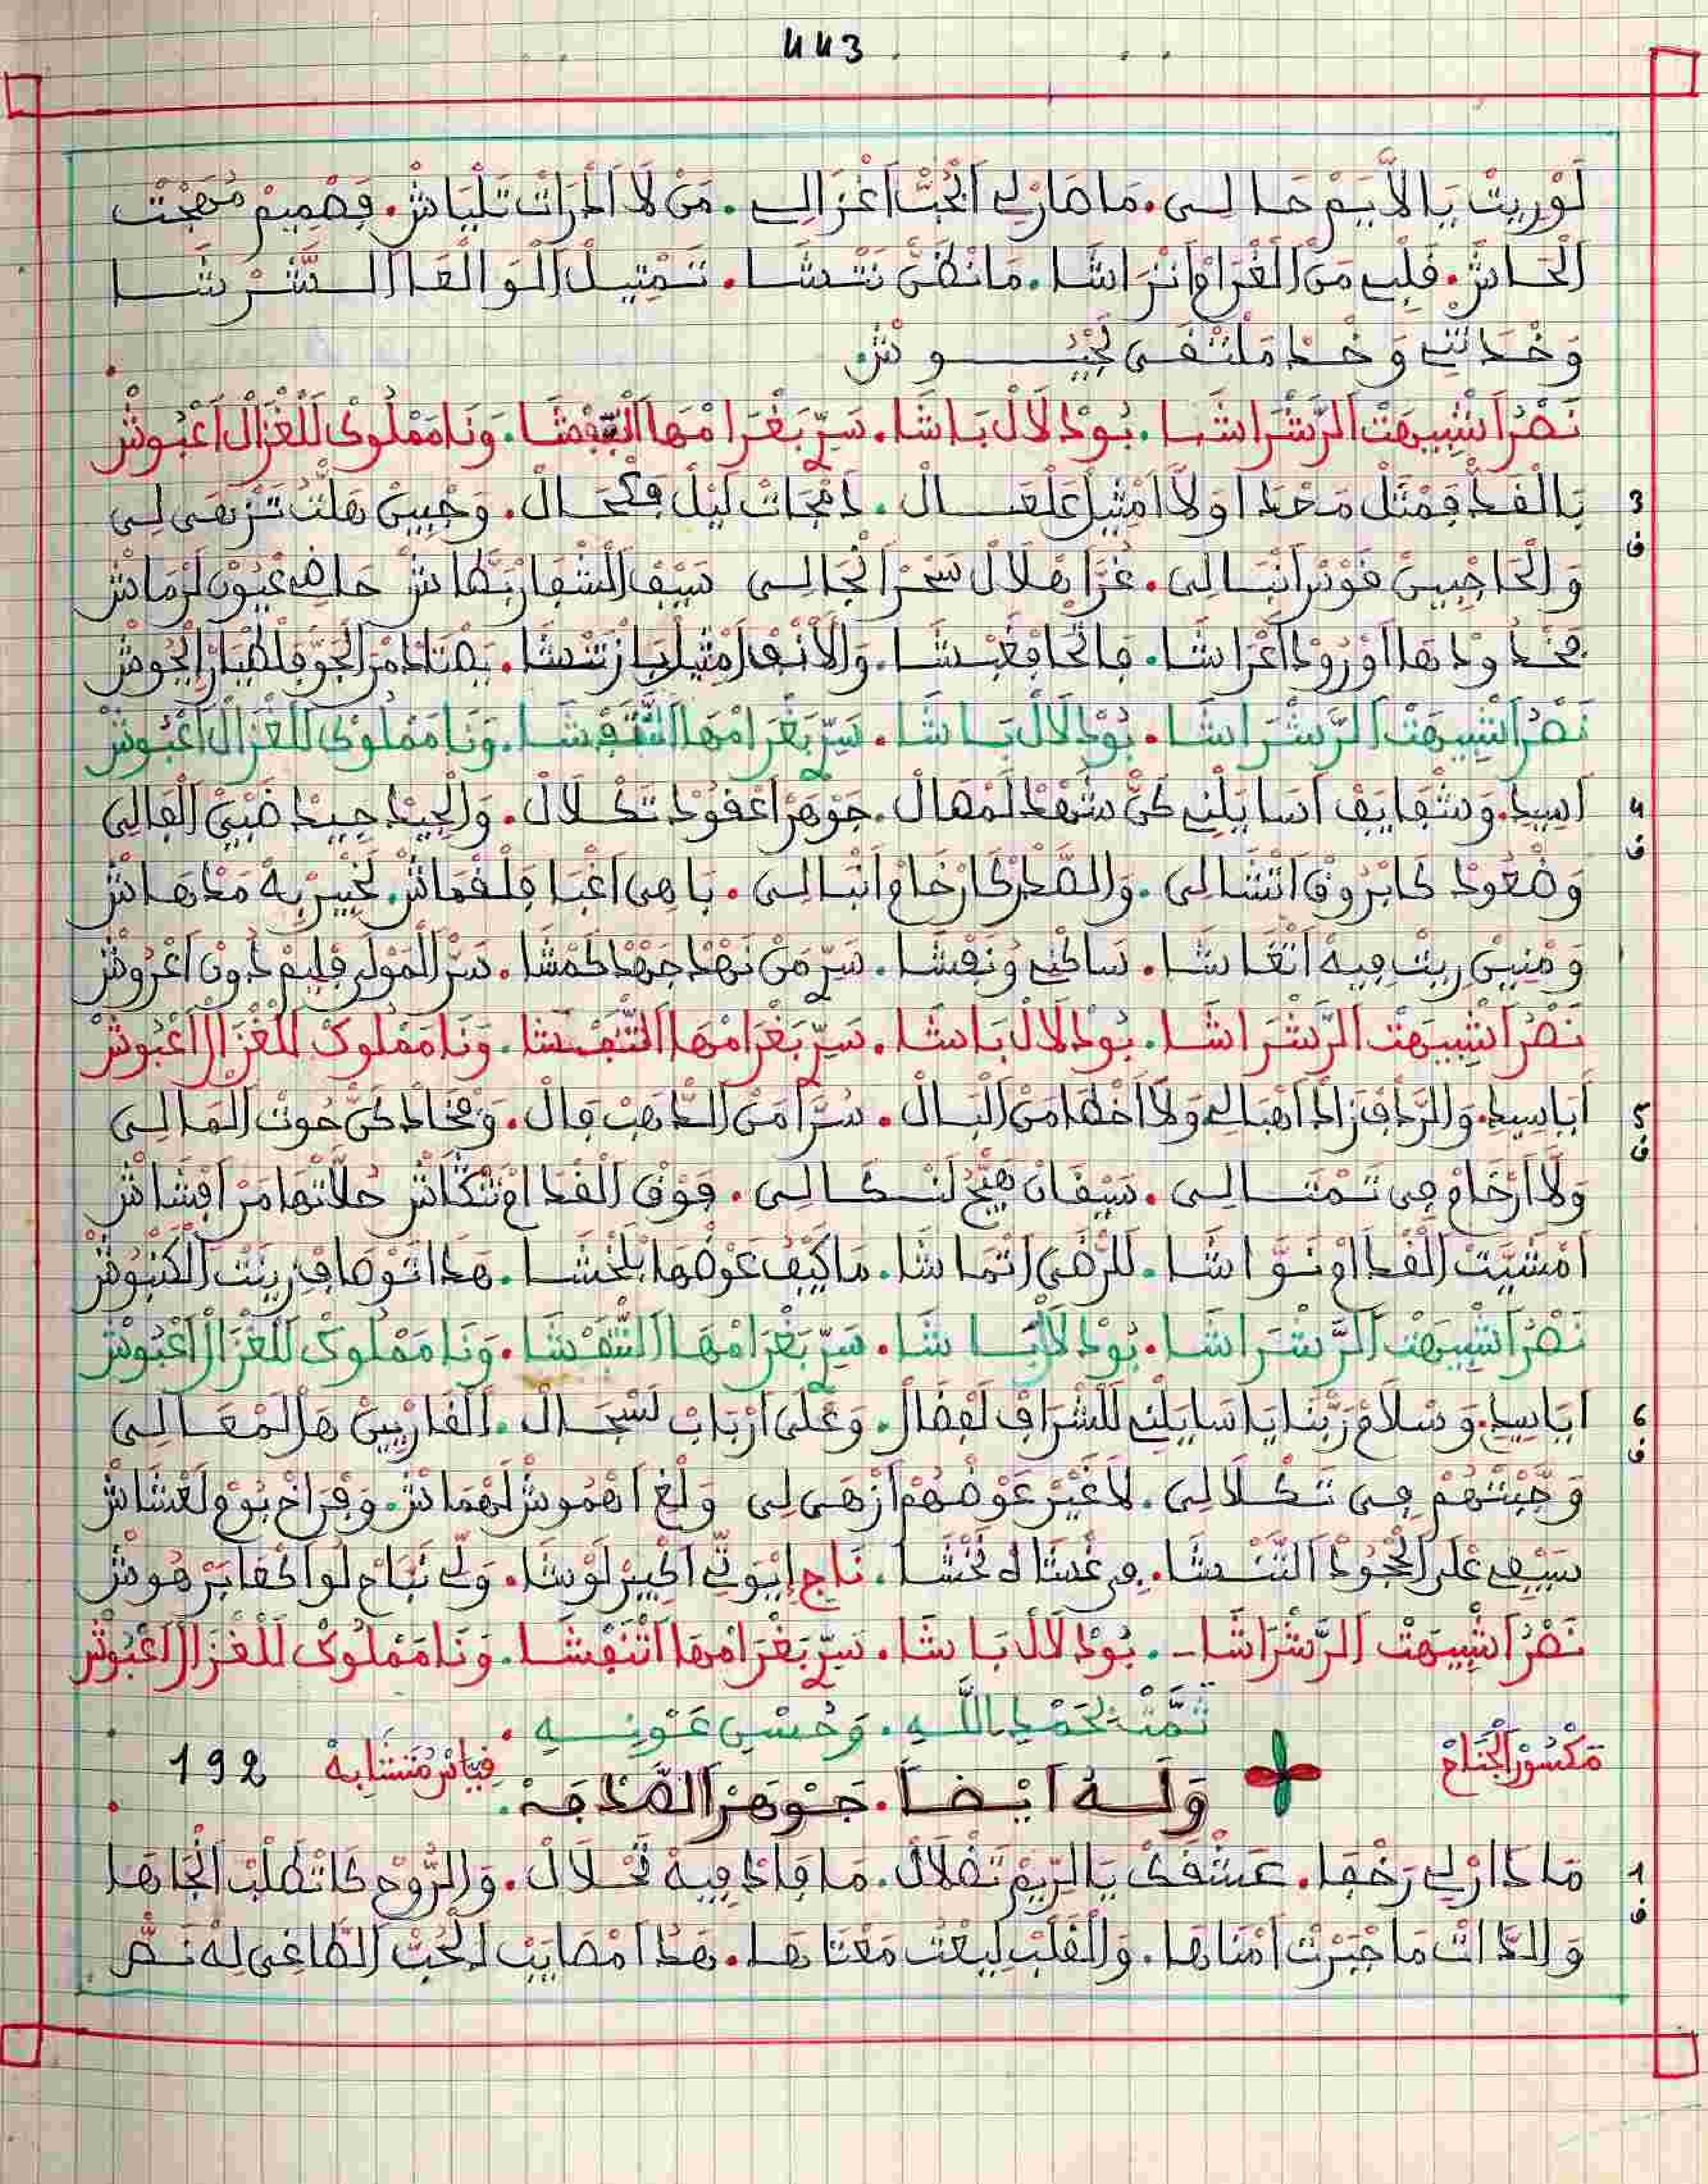 443
لَوْ رِيتْ يَا لاَّيَمْ حَالِي. مَا صَارْ لِي اَلْحُبّْ اَغْزَالِي. مَنْ لاَ اَدْرَاتْ تَلْيَاشْ. فِصْمِيمْ مُهَجْتْ
اَلْحَاشْ. قَلْبِي مَنْ اَلْغْرَامْ اَنْرَاشَا. مَا نْظَنّْ نَتْشَا. تَمْتِيلْ اَلُّو الْقَا
وَحْدَاتْنِي وَحْدْ مَلْتْقَى لَجْيُوشْ
نَصْرُ اَشْبِيهَتْ اَلرَّشْرَاشَا. بُودْلاَلْ بَاشَا. سَرّْ بَغْرَامْهَا اَتّْفِشَا. وَنَا مَمْلُوكْ لَلْغْزَالْ اَعْبُوشْ
3
ف
يَالْقَدّْ فِمْتَلْ مَحْدَا وَلاَّ اَمْتِيلْ عَلْعَالْ. دَمْجَاتْ لِيلْ فِكْحَالْ. وَجْبِينْ هَلّْتْ تَزْهَى لِي
وَالْحَاجْبِينْ قَوْسْ اَنْبَالِي. غُرَّا هْلاَلْ سَحْرْ اَنْجَالِي سَيْفْ اَلشْفَارْ بَطَّاشْ حَاضِي عْيُونْ اَرْمَاشْ
فَخْدُودْهَا اَوْرُودْ اَعْرَاشَا. فَاتْحَا فِغَبْشَا. وَالاَنْفْ اَمْتِيلْ بَازْ تَنْشَا. يَصْتَادْ مَنْ الْجَوّْ فَلْطْيَارْ اَلْحُوشْ
نَصْرُ اَشْبِيهَتْ اَلرَّشْرَاشَا. بُودْلاَلْ بَاشَا. سَرّْ بَغْرَامْهَا اَتّْفِشَا. وَنَا مَمْلُوكْ لَلْغْزَالْ اَعْبُوشْ
4
ف
اَسِيدِي. وَشْفَايَفْ اَسَايَلْنِي كَنْ شَهْدْ لَمْهَالْ. جَوْهَرْ اَعْقُودْ تَكْلاَلْ. وَالْجِيدْ جِيدْ ضَبْيْ اَلْفَالِي
وَصْعُودْ كَا بْرُوقْ اَتْشَالِي. وَالصَّدْرْ كَا رْخَامْ اَنْبَالِي. بَاهِي اَغْبَا فَلْقْمَاشْ. لَخْبِيرْ بِهْ مَدْهَاشْ
وَمْنِينْ رِيتْ فِيهْ اَتْغَاشَا. سَاكْنِي وُنَفْشَا. سَرّْ مَنْ نَهْدْ جَهْدْ كَمْشَا. سَرّْ اَلْمَوْلَى فِلِيمْ دُونْ اَعْرُوشْ
نَصْرُ اَشْبِيهَتْ اَلرَّشْرَاشَا. بُودْلاَلْ بَاشَا. سَرّْ بَغْرَامْهَا اَلتّْفِشَا. وَنَا مَمْلُوكْ لَلْغْزَالْ اَعْبُوشْ
5
ف
اَيَاسِيدِي. وَالرّْدَافْ زَادْ اَهْبَالِي وَلاَّ اَخْطَا مَنْ اَلْبَالْ. سُرَّا مَنْ اَلدّْهَبْ قَالْ. وَفْخَادْ كَنْ حُوتْ اَلْمَالِي
وَلاَّ اَرْخَامْ فِي تَمْتَالِي. سِيقَانْ هَيّْجْ لَنْكَالِي. فَوْقْ اَلْقْدَامْ تَتْكَاشْ حُلاَّتْهَا مَنْ اَفْشَاشْ
اَمْشِيَّتْ اَلْقْدَامْ نَوَّاشَا. لَلرّْضَى اَتْمَاشَا. مَا كَيْفْ عَوْضْهَا بَلْخَشَا. هَدَا تَوْصَافْ زِينَتْ اَلْكَنْبُوشْ
نَصْرُ اَشْبِيهَتْ اَلرَّشْرَاشَا. بُودْلاَلْ بَاشَا. سَرّْ بَغْرَامْهَا اَلتّْفِشَا. وَنَا مَمْلُوكْ لَلْغْزَالْ اَعْبُوشْ
6
ف
اَيَاسِيدِي. وَسْلاَمْ رَبّْنَا يَا سَايَلْنِي لَلشّْرَافْ لَفْضَالْ. وَعْلَى اَرْبَابْ لَسْجَالْ. اَلْقَارْيِينْ هَلْ لَمْعَالِي
وَحْبَّتْهُمْ فِي تَكْلاَلِي. لاَ غَيْرْ عَوْضْهُمْ اَزْهَى لِي وَلْغِ اَهْمُوشْ لَهْمَاشْ. وَفْرَاخْ بُومْ لَعْشَاشْ
سَيْفِي عْلَى اَلْجْحُودْ اَلتَّنْشَا. مِ غْشَا لَا تَخْشَا. نَاجِ اِيْوَتِّي اَكْبِيرْ لَوْشَا. وَلِي نْبَاحْ لُو اَكْفَا بَرْهُوشْ
نَصْرُ اَشْبِيهَتْ اَلرَّشْرَاشَا. بُودْلاَلْ بَاشَا. سَرّْ بَغْرَامْهَا اَتْنَفْشَا. وَنَا مَمْلُوكْ لَلْغْزَالْ اَعْبُوشْ
تَمَّتْ بِحَمْدِ اللَّهِ. وَحُسْنِ عَوْنِهِ.
مَكْسُورْ اَلْجْنَاحْ
قِيَاسْ مُتَشَابِهْ 192
وَلَهُ اَيْضاً. جَوْهَرْ اَلصَّدْفَهْ.
1
ف
مَادَارْ لِي رَخْفَا. عَشْقَكْ يَالرِّيمْ تَقْلاَلْ. مَا فَادْ فِيهْ تَحْلاَلْ. وَالرُّوحْ كَاتْطَلْبْ اَلْجَاهَا
وَالدَّاتْ مَا جَبْرَتْ اَمْنَاهَا. وَالْقَلْبْ لِيعْتْ مَعْنَاهَا. هَدَا اَمْصَايَبْ اَلْحُبّْ اَلطَّاغِي لِهْ نَصّْ